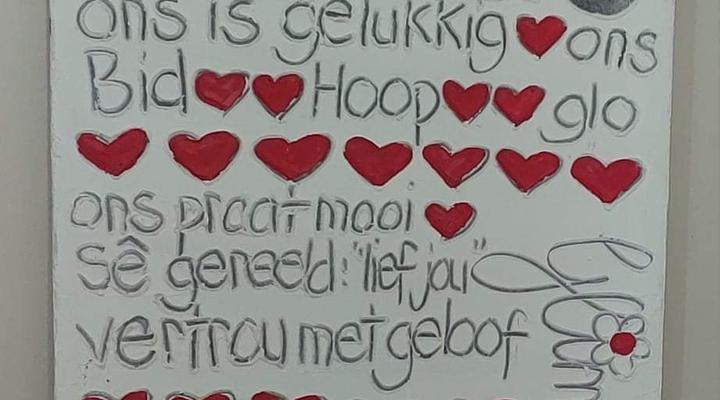 ons is gelukkig ons
Bid Hoop glo
ons praat mooi
sê gereeld: "lief jou"
vertrou met geloof